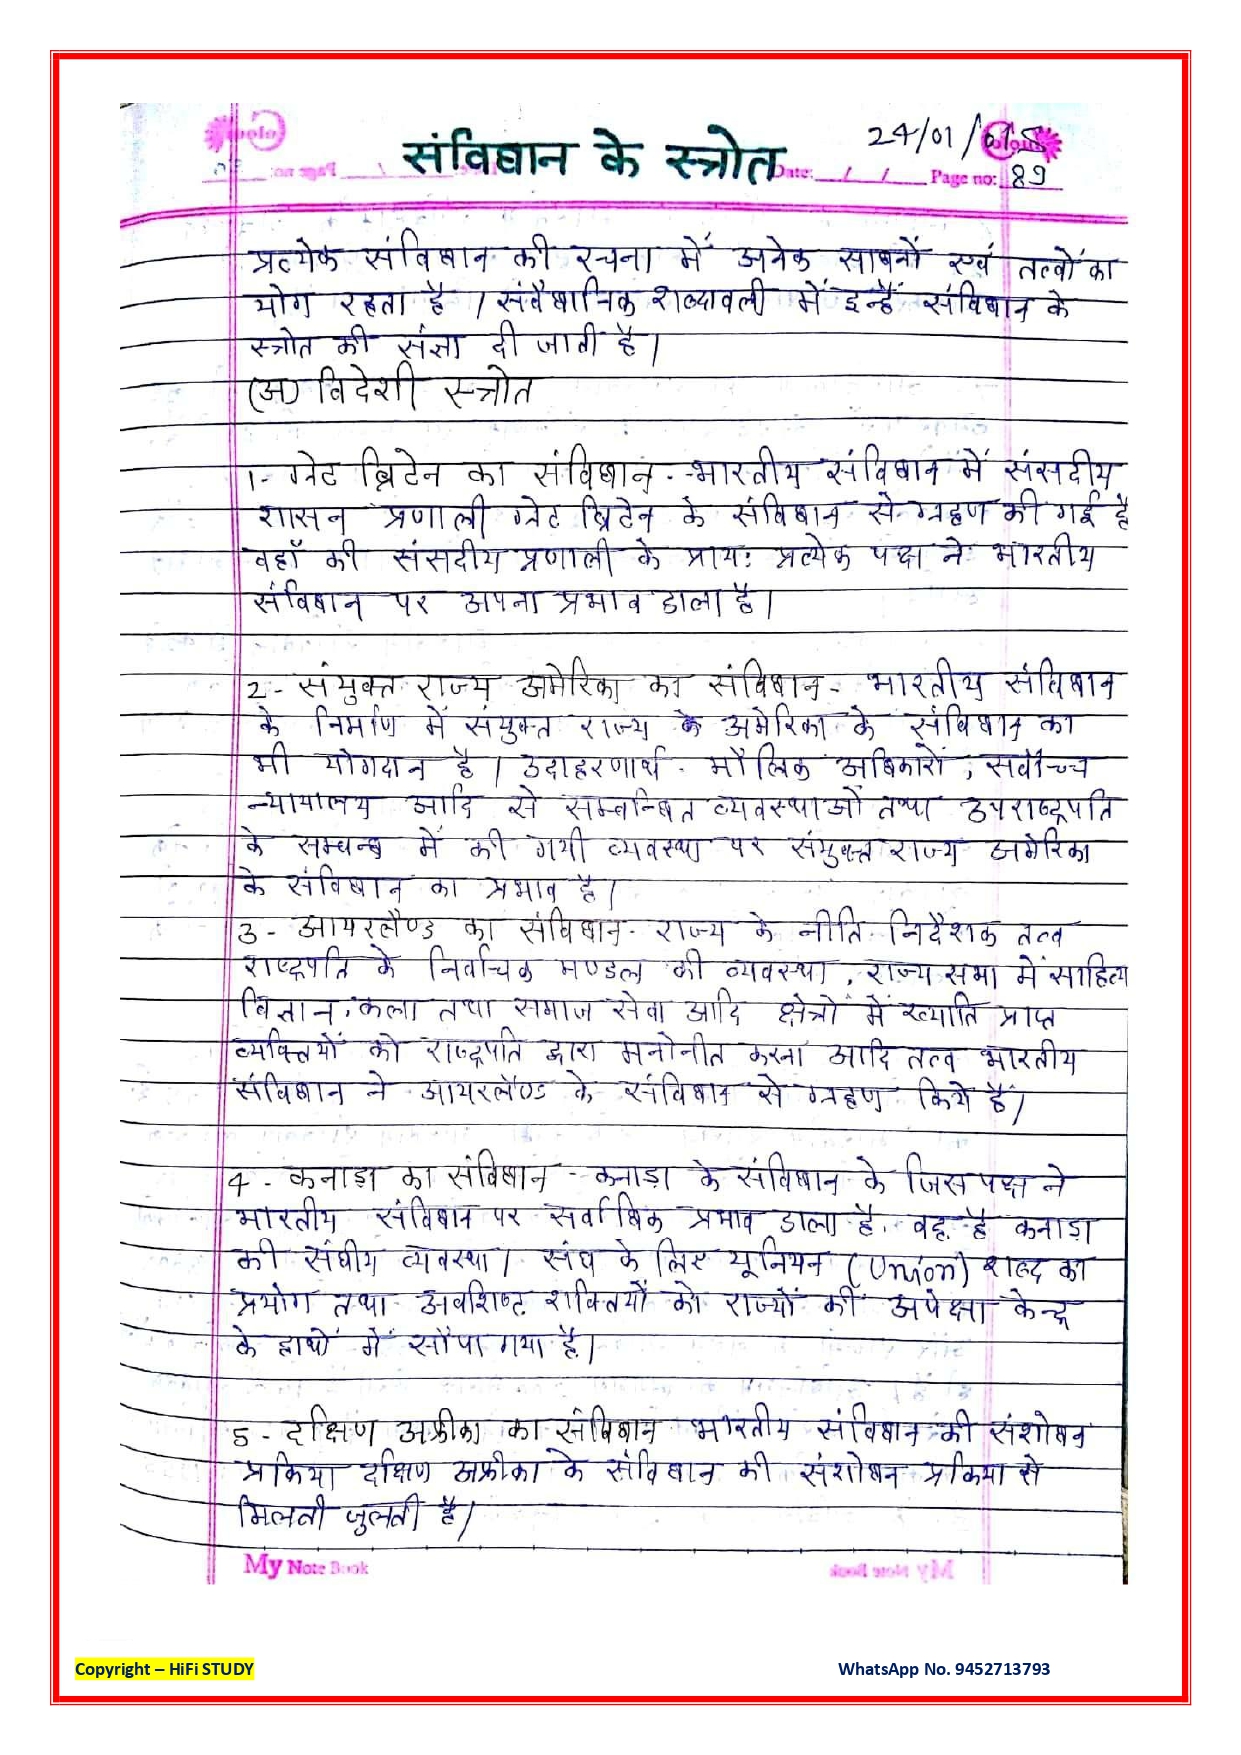 संविधान के स्त्रोत
24/01/
Date: __/__/__ Page no: 89
प्रत्येक संविधान की रचना में अनेक साधनों एवं तत्वों का
योग रहता है। संवैधानिक शब्दावली में इन्हें संविधान के
स्त्रोत की संज्ञा दी जाती है।
(अ) विदेशी स्त्रोत
1- ग्रेट ब्रिटेन का संविधान - भारतीय संविधान में संसदीय
शासन प्रणाली ग्रेट ब्रिटेन के संविधान से ग्रहण की गई है
वहाँ की संसदीय प्रणाली के प्राय: प्रत्येक पक्ष ने भारतीय
संविधान पर अपना प्रभाव डाला है।
2- संयुक्त राज्य अमेरिका का संविधान- भारतीय संविधान
के निर्माण में संयुक्त राज्य के अमेरिका के संविधान का
भी योगदान है। उदाहरणार्थ - मौलिक अधिकारों, सर्वोच्च
न्यायालय आदि से सम्बन्धित व्यवस्थाओं तथा उपराष्ट्रपति
के सम्बन्ध में की गयी व्यवस्था पर संयुक्त राज्य अमेरिका
के संविधान का प्रभाव है।
3- आयरलैण्ड का संविधान- राज्य के नीति निर्देशक तत्व
राष्ट्रपति के निर्वाचक मण्डल की व्यवस्था, राज्य सभा में साहित्य
विज्ञान, कला तथा समाज सेवा आदि क्षेत्रों में ख्याति प्राप्त
व्यक्तियों को राष्ट्रपति द्वारा मनोनीत करना आदि तत्व भारतीय
संविधान ने आयरलैण्ड के संविधान से ग्रहण किये हैं।
4- कनाडा का संविधान - कनाडा के संविधान के जिस पक्ष ने
भारतीय संविधान पर सर्वाधिक प्रभाव डाला है, वह है कनाडा
की संघीय व्यवस्था। संघ के लिए यूनियन (Union) शब्द का
प्रयोग तथा अवशिष्ट शक्तियों को राज्यों की अपेक्षा केन्द्र
के हाथों में सौंपा गया है।
5- दक्षिण अफ्रीका का संविधान भारतीय संविधान की संशोधन
प्रक्रिया दक्षिण अफ्रीका के संविधान की संशोधन प्रक्रिया से
मिलती जुलती है।
My Note Book
Copyright – HiFi STUDY WhatsApp No. 9452713793